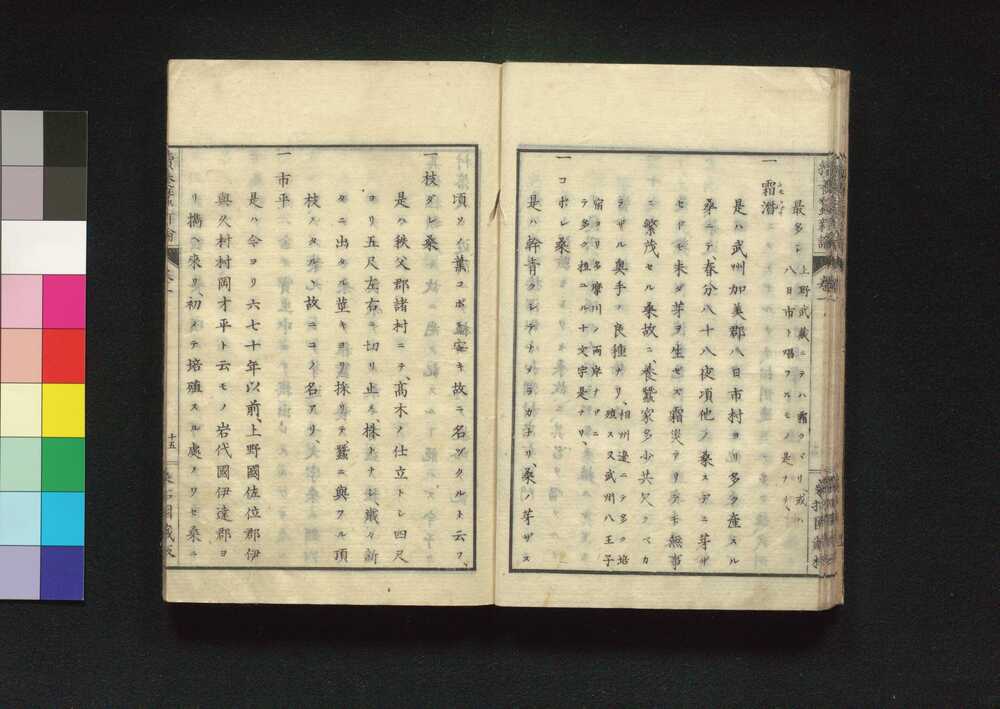 最多シ 上野武蔵ニテハ霜クヾリ、或ハ
八日市ト唱フルモノ是ナリ、
一 霜潜
是ハ武州加美郡八日市村ヨリ多ク産スル
桑ニテ、春分八十八夜項他ノ桑スデニ芽ザ
セドモ未ダ芽ヲ生ゼズ霜災アリテモ無事
ニ繁茂セル桑故ニ、養蚕家多少共欠クベカ
ラザル奥手ノ良種ナリ、相州邉ニテ多ク培
殖ス又武州八王子
宿ヨリ多摩川ノ両岸ナドニ
テ多ク植ユル十文字是ナリ、
一 コボレ桑
是ハ幹青クシテナメラカナリ、桑ノ芽ザス
頃ソノ葉コボレ
故ニ名ヅクルト云フ、
一 枝ダレ桑
是ハ秩父郡諸村ニテ、高木ノ仕立トシ四尺
ヨリ五尺左右ニ切リ止メ、株トナシ、歳々新
タニ出タル莖キヨリ葉ヲ採リテ、蠶ニ與フル頂
枝シダルヽ故ニコノ名アリ、
一 市平
是ハ今ヨリ六七十年以前、上野國佐位郡伊
與久村村岡才平ト云モノ岩代國伊達郡ヨ
リ携ヘ來リ、初メテ培殖スル處ノワセ桑ニ
十五